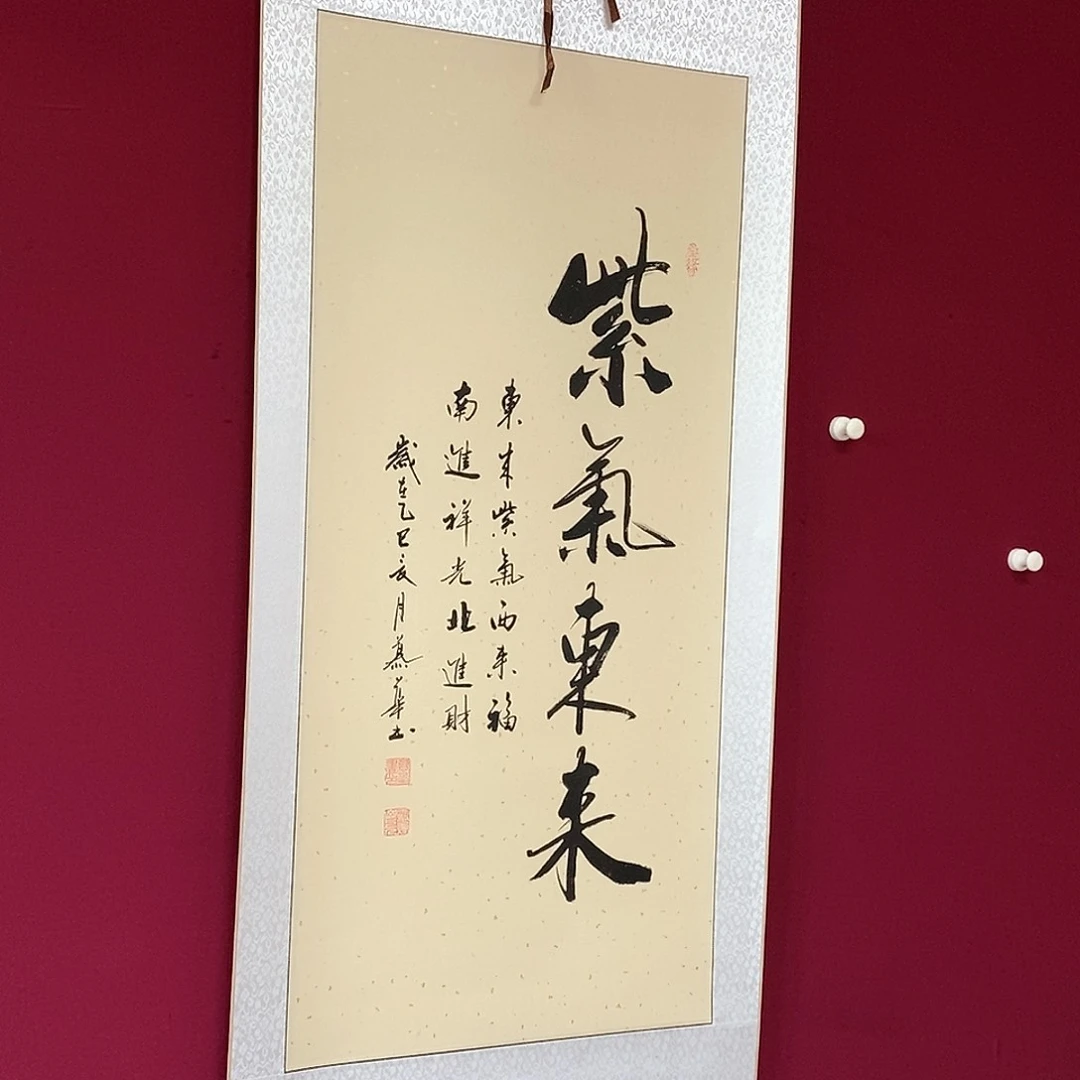 紫氣東来
東来紫氣西来福
南進祥光北進財
歲在乙巳亥月燕華书